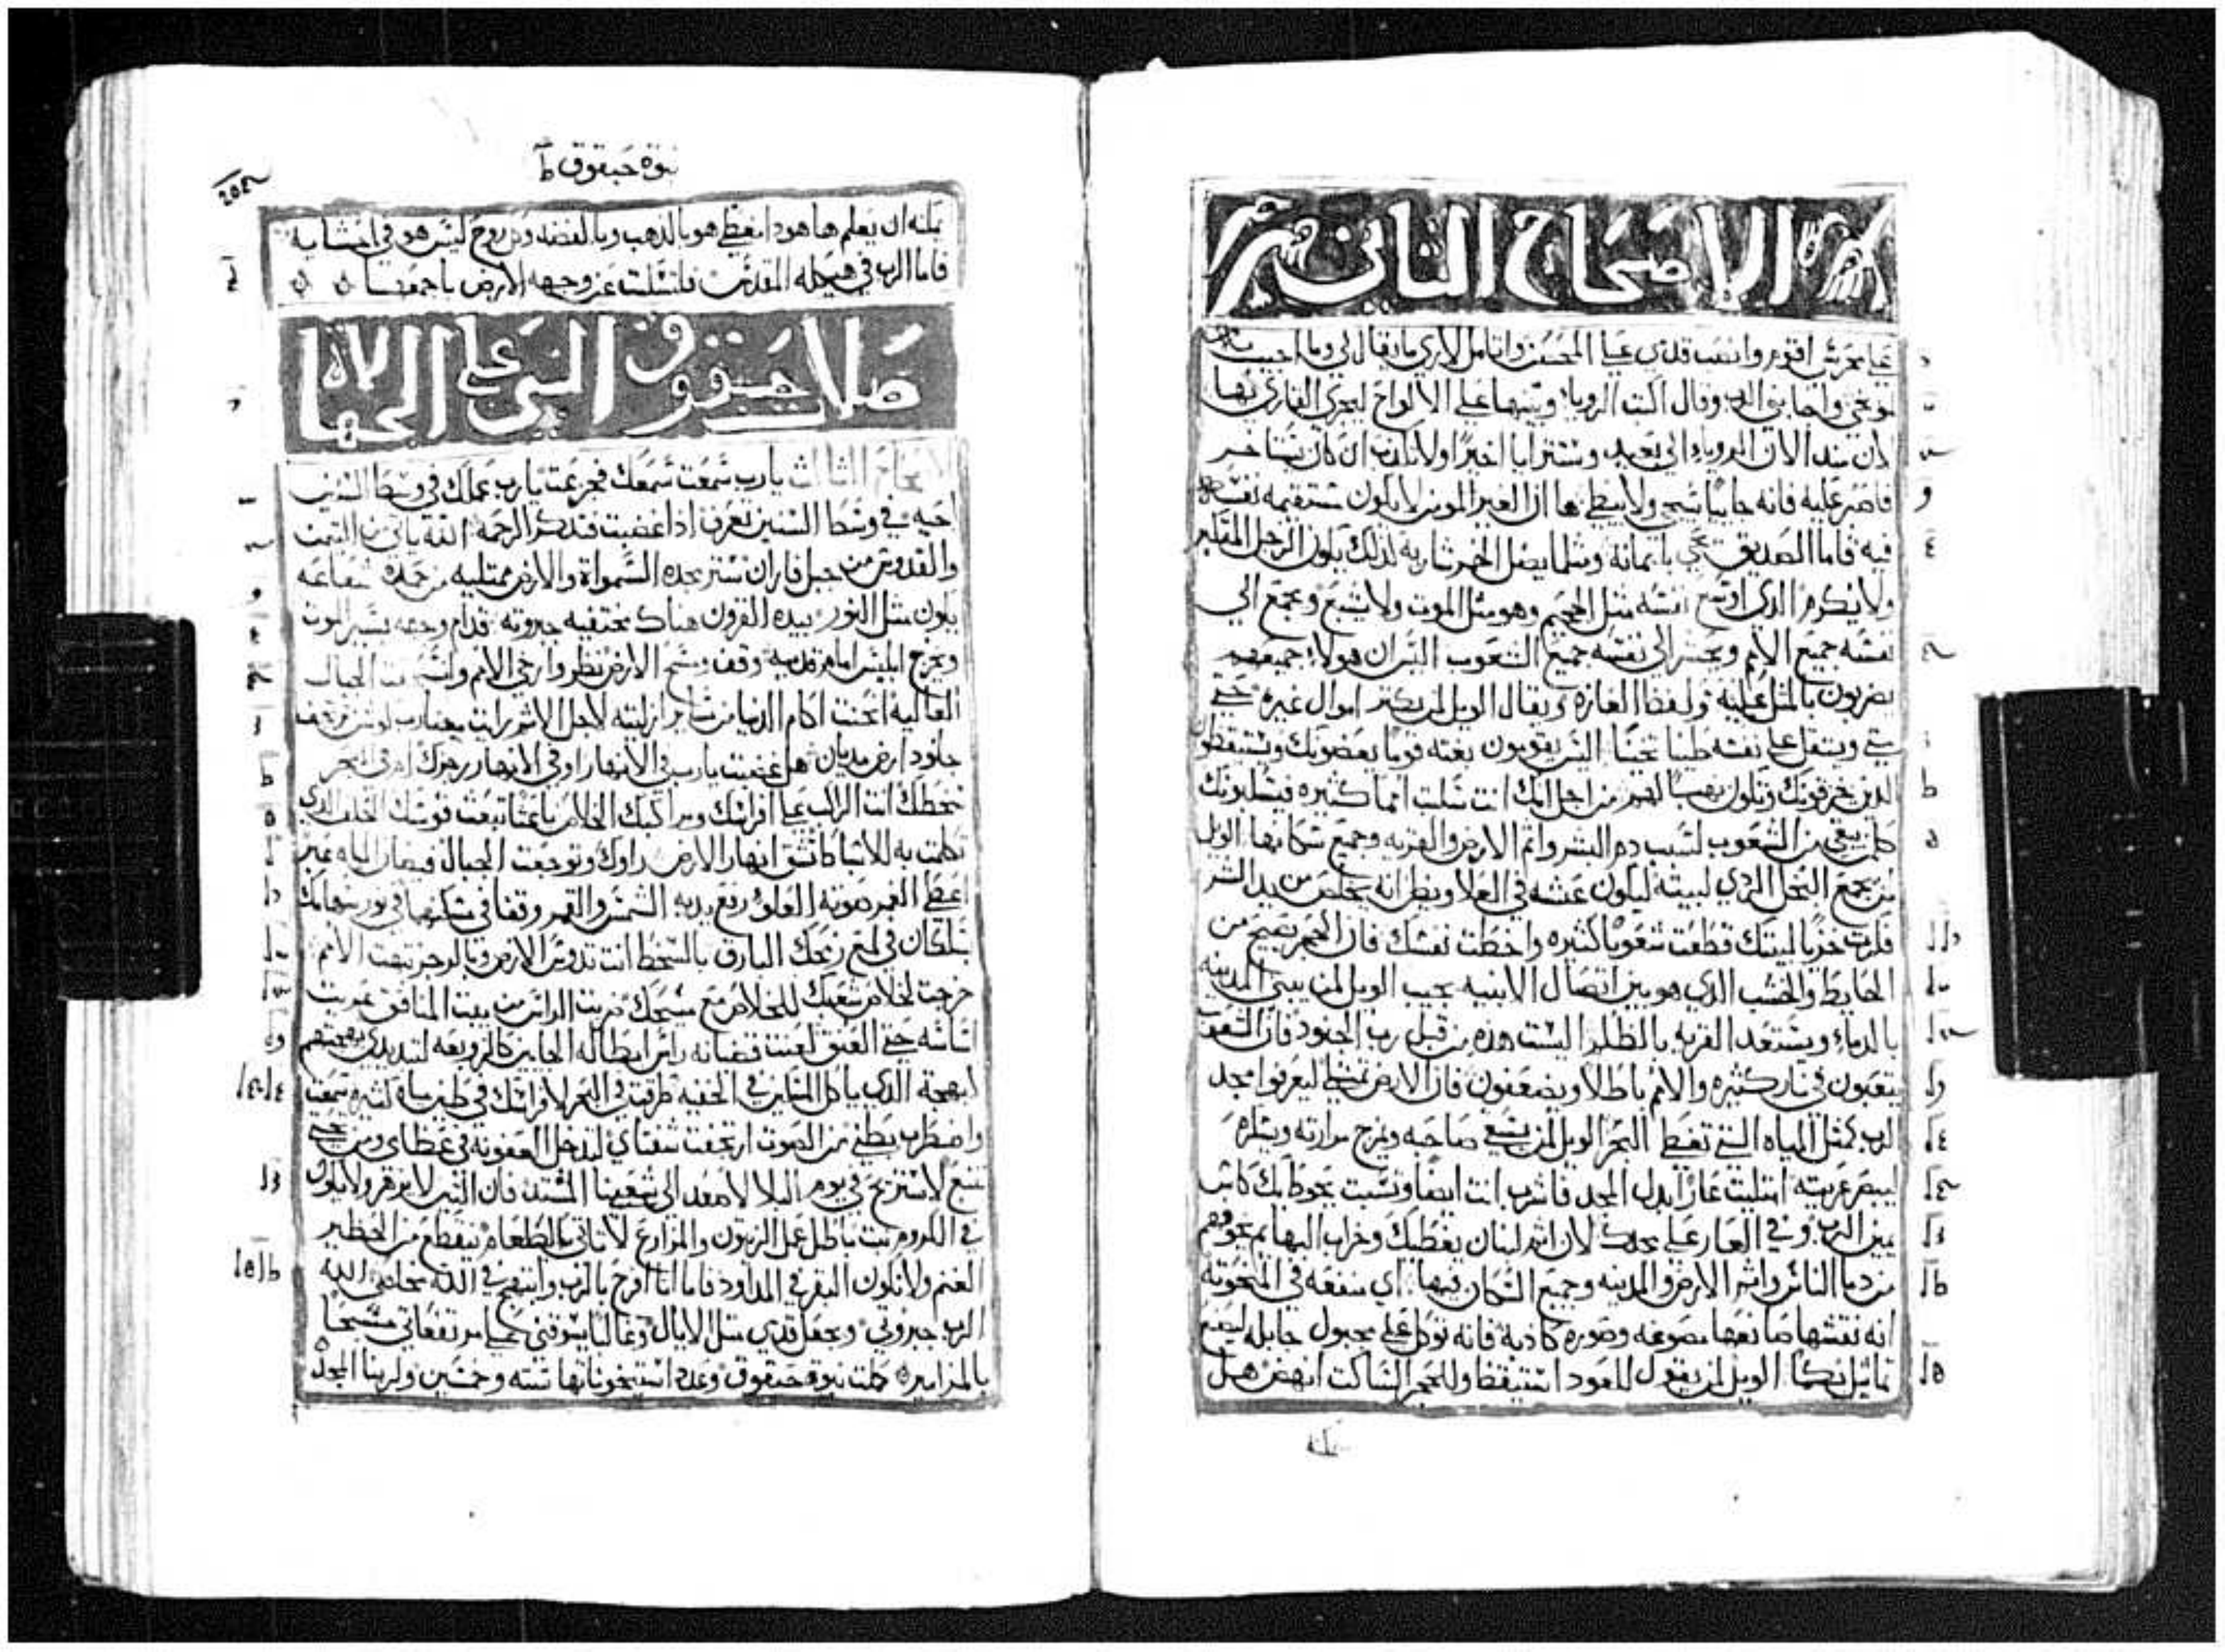 الاصحاح الثاني
على محرسي اقوم وانصب قدمي على الحصن واتامل لاري ماذا يقال لي وما اجيب
توبخي واجابني الرب وقال اكتب الرويا وبينها على الالواح ليجري القاري بها
لان بعد الان الرويا الى بعيد وستترايا اخيرا ولا تكذب ان كان
فاصبر عليه فانه جاييا سيجي ولا يبطي ها ان الغير المومن لا يكون مستقيمه نفسه
فيه فاما الصديق يحيى بايمانه ومثلما يضل الخمر شاربه لذلك يكون الرجل المتكبر
ولا يكرم الدي اوسع نفسه مثل الجحيم وهو مثل الموت ولا يشبع ويجمع الي
نفسه جميع الامم ويحشر الى نفسه جميع الشعوب اليس ان هولاء جميعهم
يضربون بالمثل عليه ولفظ الغازه ويقال الويل لمن يكتر اموال غيره حتي
متي ويثقل على نفسه طينا تخينا اليس يقومون بغته قوما يعضونك ويستيقظون
الدين يخرقونك وتكون نهبا لهم من اجل انك انت سلبت امما كثيره فيسلبونك
كل من بقي من الشعوب لسبب دم البشر واثم الارض والقريه وجميع سكانها الويل
لمن يجمع البخل الردي لبيته ليكون عشه في العلا ويظن انه يخلص من يد الشر
فكرت خزيا لبيتك قطعت شعوبا كثيره واخطت نفسك فان الحجر يصيح من
الحايط والخشب الدي هو بين اتصال الابنيه يجيب الويل لمن يبني المدينه
بالدماء ويستعد القريه بالظلم اليست هذه من قبل رب الجنود فان الشعوب
يتعبون في نار كثيره والامم باطلا ويضعفون فان الارض تمتلي ليعرفوا مجد
الرب كمثل المياه التي تغطي البحر الويل لمن يسقي صاحبه ويمزج مرارته ويسكره
ليبصر عريته امتليت عارا بدل المجد فاشرب انت ايضا وتسبت يحوط بك كاس
يمين الرب وقي العار على مجدك لان اثم لبنان يغطيك وخراب البهايم يخوفهم
من دما الناس واثم الارض والمدينه وجميع السكان فيها اي منفعه في المنحوته
انه نقشها صانعها مصوغه وصوره كاذبه فانه توكل على مجبول جابله ليصنع
تماثيل بكما الويل لمن يقول للعود استيقظ وللحجر الساكت انهض هل
يمكنه
نبوة حبقوق ط
يمكنه ان يعلم ها هودا مغطي هو بالدهب وبالفضه وكل روح ليس هو في احشايه
فاما الرب في هيكله المقدس فلتسكت عن وجهه الارض باجمعها
صلاة حبقوق النبي على الجهالات
الاصحاح الثالث يارب سمعت سمعك فجزعت يارب عملك في وسط السنين
احيه في وسط السنين تعرف اذا غضبت فتدكر الرحمه الله ياتي من التيمن
والقدوس من جبل فاران ستر مجده السمواة والارض ممتليه من حمده شعاعه
يكون مثل النور بيده القرون هناك مختفيه جبروته قدام وجهه يسير الموت
ويخرج ابليس امام قدميه وقف ومسح الارض نظر وارخي الامم وانسحقت الجبال
العاليه انحنت اكام الدنيا من ازليته لاجل الاثم رايت
جلود ارض مديان هل غضبت يارب في الانهار او في الانهار رجزك ام في البحر
سخطك انت الراكب على افراسك ومراكبك الخلاص باعثا تبعث قوسك الحلف الدي
تكلمت به للاسباط تشق انهار الارض راوك وتوجعت الجبال فيضان المياه عبر
اعطي الغمر صوته العلو رفع يديه الشمس والقمر وقفا في مسكنهما في نور سهامك
يسلكان في لمع رمحك البارق بالسخط انت تدوس الارض وبالرجز تبهت الامم
خرجت لخلاص شعبك للخلاص مع مسيحك ضربت الراس من بيت المنافق عريت
اساسه حتى العنق لعنت قضبانه راس ابطاله الجايين كالزوبعه لتبديدي بهجتهم
كبهجة الدي ياكل المسكين في الخفيه طرقت في البحر لافراسك في طين مياه كثيره سمعت
واضطرب بطني من الصوت ارتجفت شفتاي لتدخل العفونه في عظاي ومن تحتي
تنبع لاستريح في يوم البلا لاصعد الى شعبنا المشتد فان التين لا يزهر ولا يكون
في الكروم نبت باطل عمل الزيتون والمزارع لا تاتي بالطعام ينقطع من الحظير
الغنم ولا تكون البقر في المداود فاما انا افرح بالرب وابتهج في الله مخلصي الله
الرب جبروتي ويجعل قدمي مثل الايال وغالبا يسوقني على مرتفعاتي مسبحا
بالمزامير كملت نبوة حبقوق وعدد استيخوناتها سته وخمسين ولربنا المجد